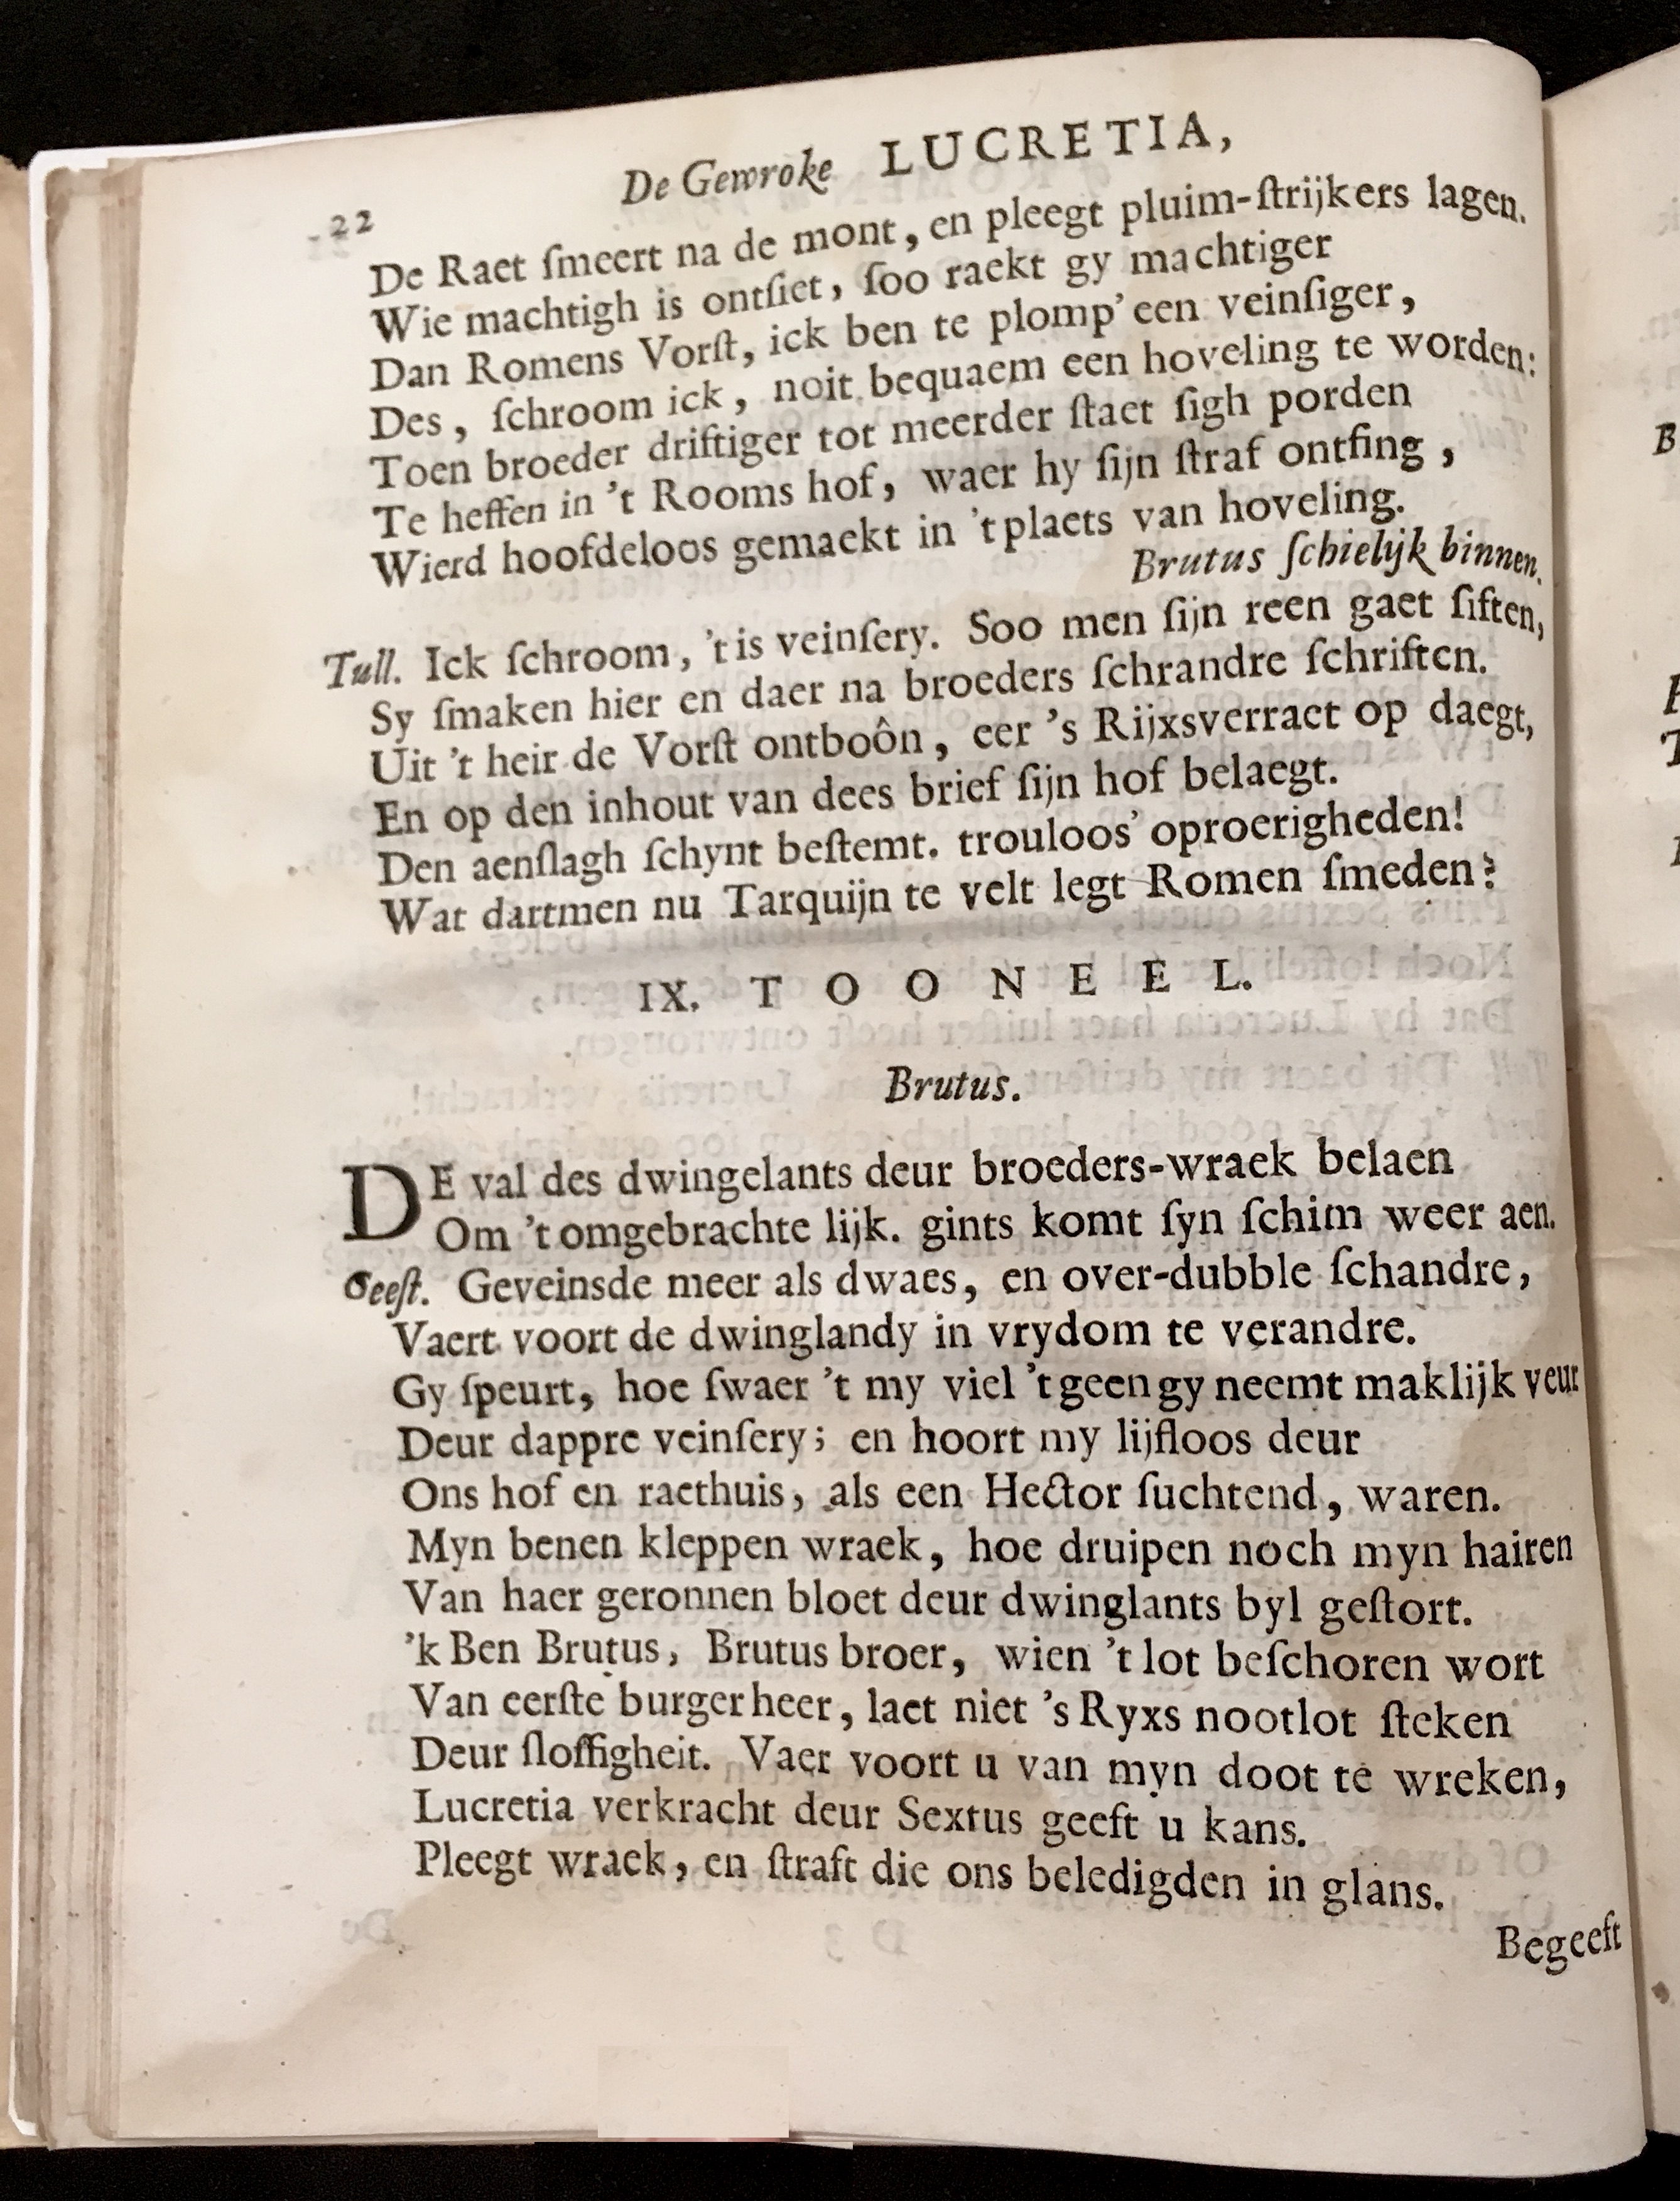 De Gewroke LUCRETIA,
22
De Raet ſmeert na de mont, en pleegt pluim-ſtrijkers lagen.
Wie machtigh is ontſiet, ſoo raekt gy machtiger
Dan Romens Vorſt, ick ben te plomp' een veinſiger,
Des, ſchroom ick, noit bequaem een hoveling te worden:
Toen broeder driftiger tot meerder ſtaet ſigh porden
Te heffen in 't Rooms hof, waer hy ſijn ſtraf ontfing,
Wierd hoofdeloos gemaekt in 't plaets van hoveling.
Brutus ſchielijk binnen.
Tull. Ick ſchroom, 't is veinſery. Soo men ſijn reen gaet ſiften,
Sy ſmaken hier en daer na broeders ſchrandre ſchriften.
Uit 't heir de Vorſt ontboôn, eer 's Rijxsverraet op daegt,
En op den inhout van dees brief ſijn hof belaegt.
Den aenſlagh ſchynt beſtemt. trouloos' oproerigheden!
Wat dartmen nu Tarquijn te velt legt Romen ſmeden?
IX. TOONEEL.
Brutus.
DE val des dwingelants deur broeders-wraek belaen
Om 't omgebrachte lijk. gints komt ſyn ſchim weer aen.
Geeſt. Geveinsde meer als dwaes, en over-dubble ſchandre,
Vaert voort de dwinglandy in vrydom te verandre.
Gy ſpeurt, hoe ſwaer 't my viel 't geen gy neemt maklijk veur
Deur dappre veinſery; en hoort my lijfloos deur
Ons hof en raethuis, als een Hector ſuchtend, waren.
Myn benen kleppen wraek, hoe druipen noch myn hairen
Van haer geronnen bloet deur dwinglants byl geſtort.
'k Ben Brutus, Brutus broer, wien 't lot beſchoren wort
Van eerſte burgerheer, laet niet 's Ryxs nootlot ſteken
Deur ſloffigheit. Vaer voort u van myn doot te wreken,
Lucretia verkracht deur Sextus geeft u kans.
Pleegt wraek, en ſtraft die ons beledigden in glans.
Begeeft